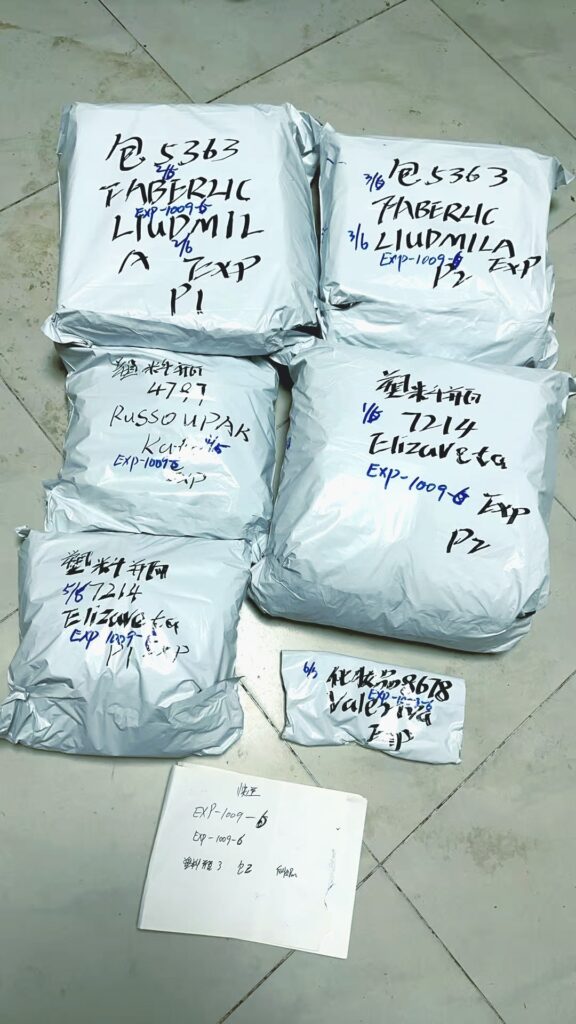 包 5363
2/6
FABERLIC
EXP-1009-6
LIUDMIL
2/6
A EXP
P1
3/6 包 5363
FABERLIC
3/6 LIUDMILA
EXP-1009-6 EXP
P2
塑料瓶
4787
RUSSOUPAK
EXP-1009-6
EXP
塑料瓶
1/6 7214
Elizaveta
EXP-1009-6 EXP
P2
塑料瓶
5/6 7214
Elizaveta
EXP 1009-
P1 EXP
化妆品8678
Exp
快运
EXP-1009-6
EXP-1009-6
3 包2